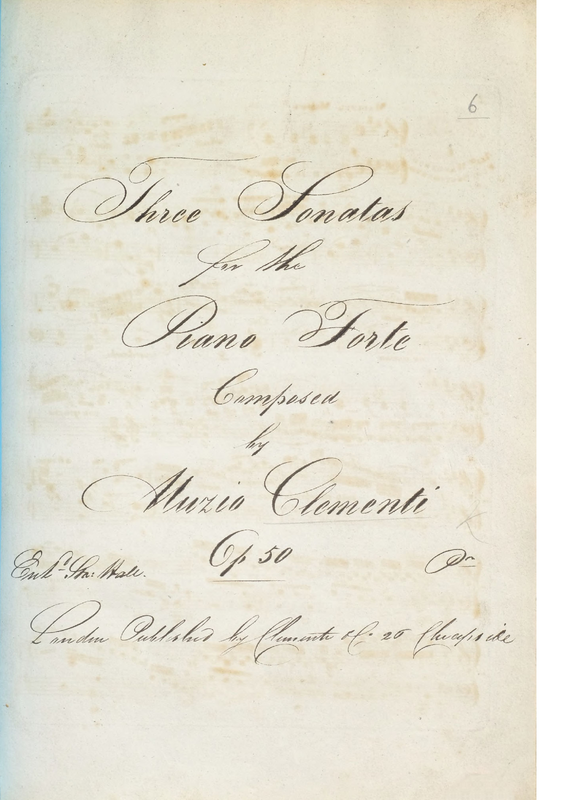 6
Three Sonatas
for the
Piano Forte
Composed
by
Muzio Clementi
Op 50
Entd. Sta: Hall. Pr
London Published by Clementi & Co 26 Cheapside